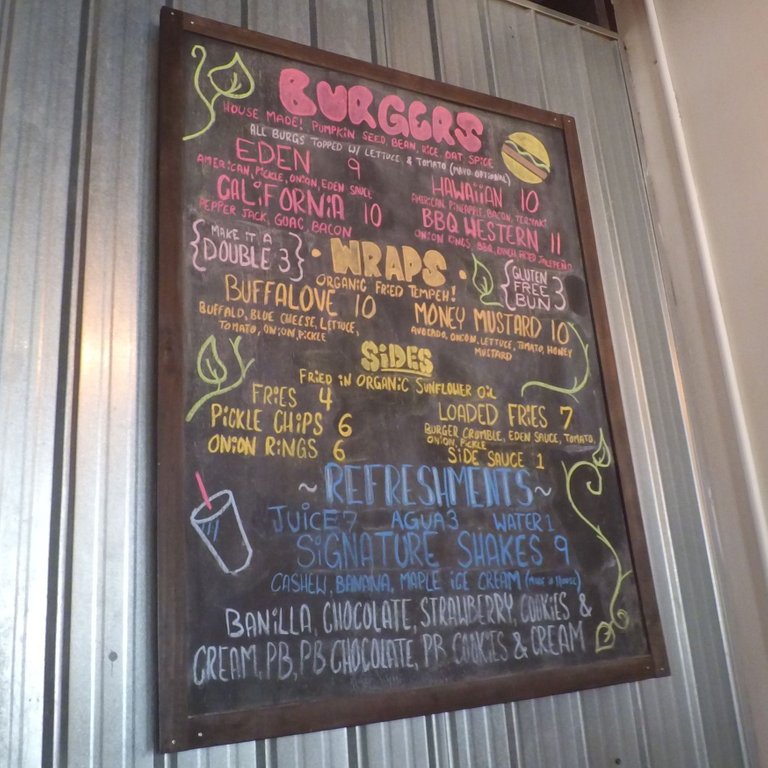 BURGERS
HOUSE MADE! PUMPKIN SEED, BEAN, RICE, OAT, SPICE
ALL BURGS TOPPED W/ LETTUCE, & TOMATO (MAYO OPTIONAL)
EDEN 9
AMERICAN, PICKLE, ONION, EDEN SAUCE
HAWAIIAN 10
AMERICAN, PINEAPPLE, BACON, TERIYAKI
CALIFORNIA 10
PEPPER JACK, GUAC, BACON
BBQ WESTERN 11
ONION RINGS, BBQ, RANCH, JALAPEÑO
{MAKE IT A DOUBLE 3}
{GLUTEN FREE BUN 3
• WRAPS •
ORGANIC FRIED TEMPEH!
BUFFALOVE 10
BUFFALO, BLUE CHEESE, LETTUCE,
TOMATO, ONION, PICKLE
MONEY MUSTARD 10
AVOCADO, ONION, LETTUCE, TOMATO, HONEY
MUSTARD
SIDES
FRIED IN ORGANIC SUNFLOWER OIL
FRIES 4
PICKLE CHIPS 6
ONION RINGS 6
LOADED FRIES 7
BURGER CRUMBLE, EDEN SAUCE, TOMATO,
ONION, PICKLE
SIDE SAUCE 1
~ REFRESHMENTS ~
JUICE 7 AGUA 3 WATER 1
SIGNATURE SHAKES 9
CASHEW, BANANA, MAPLE ICE CREAM (MADE IN HOUSE)
BANILLA, CHOCOLATE, STRAWBERRY, COOKIES &
CREAM, PB, PB CHOCOLATE, PB COOKIES & CREAM